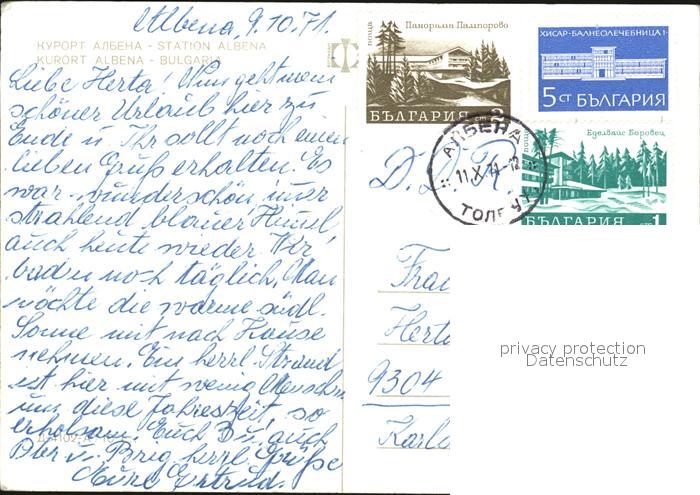 Albena, 9.10.71.
КУРОРТ АЛБЕНА - STATION ALBENA
KURORT ALBENA - BULGARI
Liebe Herta! Nun geht mein
schöner Urlaub hier zu
Ende u. Ihr sollt noch einen
lieben Gruß erhalten. Es
war wunderschön, nur
strahlend blauer Himmel
auch heute wieder. Wir
baden noch täglich. Man
möchte die warme südl.
Sonne mit nach Hause
nehmen. Ein herrl. Strand
ist hier mit wenig Menschen
um diese Jahreszeit, so
erholsam. Euch auch
herzl. Grüße
Eure Gertrud.
поща
Панорама Пампорово
БЪЛГАРИЯ
ХИСАР-БАЛНЕОЛЕЧЕБНИЦА 1-
5 СТ БЪЛГАРИЯ
поща
Еделвайс Боровец
БЪЛГАРИЯ 1
АЛБЕНА
11.X.71-12
ТОЛБУХ
D.D.R.
Frau
Herta
9304
Karls
privacy protection
Datenschutz